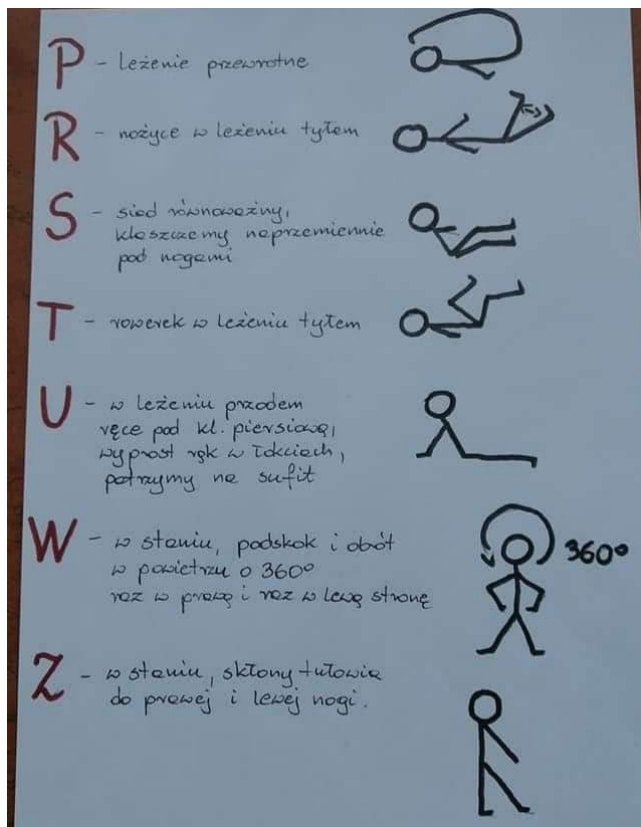 P - leżenie przewrotne
R - nożyce w leżeniu tyłem
S - siad równoważny,
klaszczemy naprzemiennie
pod nogami
T - rowerek w leżeniu tyłem
U - w leżeniu przodem
ręce pod kl. piersiową,
wyprost rąk w łokciach,
patrzymy na sufit
W - w staniu, podskok i obót
w powietrzu o 360°
raz w prawą i raz w lewą stronę
360°
Z - w staniu, skłony tułowia
do prawej i lewej nogi.